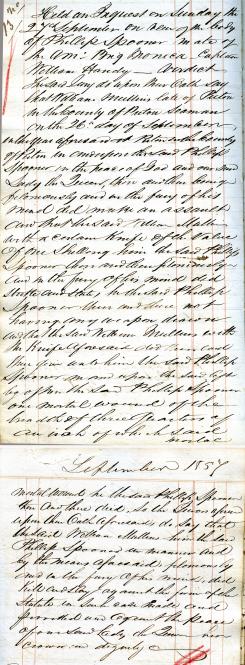 No 13
Held an Inquest on Sunday the
27th September on view of the body
of Phillip Spooner Mate of
the Amn Brig Bronica Captain
William Handy — Verdict
The said Jury do upon their Oath say
that William Mullins late of Pictou
in the County of Pictou Seaman
on the 26th day of September
in the year aforesaid at Pictou in the County
of Pictou in and upon the said Phillip
Spooner in the peace of God and our said
Lady the Queen, then and there being
feloniously and in the fury of his
mind did make an assault
and that the said William Mullins
with a certain Knife of the value
of One Shilling him the said Phillip
Spooner then and there feloniously
and in the fury of his mind did
Strike and Stab, he the said Phillip
Spooner then and there not
having any weapon drawn
and the said William Mullins with
the Knife aforesaid did then and
there give unto him the said Phillip
Spooner in and upon the said
by of the said Phillip Spooner
one mortal wound of the
breadth of three quarters of
an inch of which said
mortal
September 1857
mortal wound he the said Phillip Spooner
then and there died. So the Jurors aforesaid
upon their Oath aforesaid do say that
the said William Mullins him the said
Phillip Spooner in manner and
by the means aforesaid, feloniously
and in the fury of his mind, did
Kill and Slay against the form of the
Statute in such case made and
provided and against the Peace
of our said Lady the Queen her
Crown and dignity